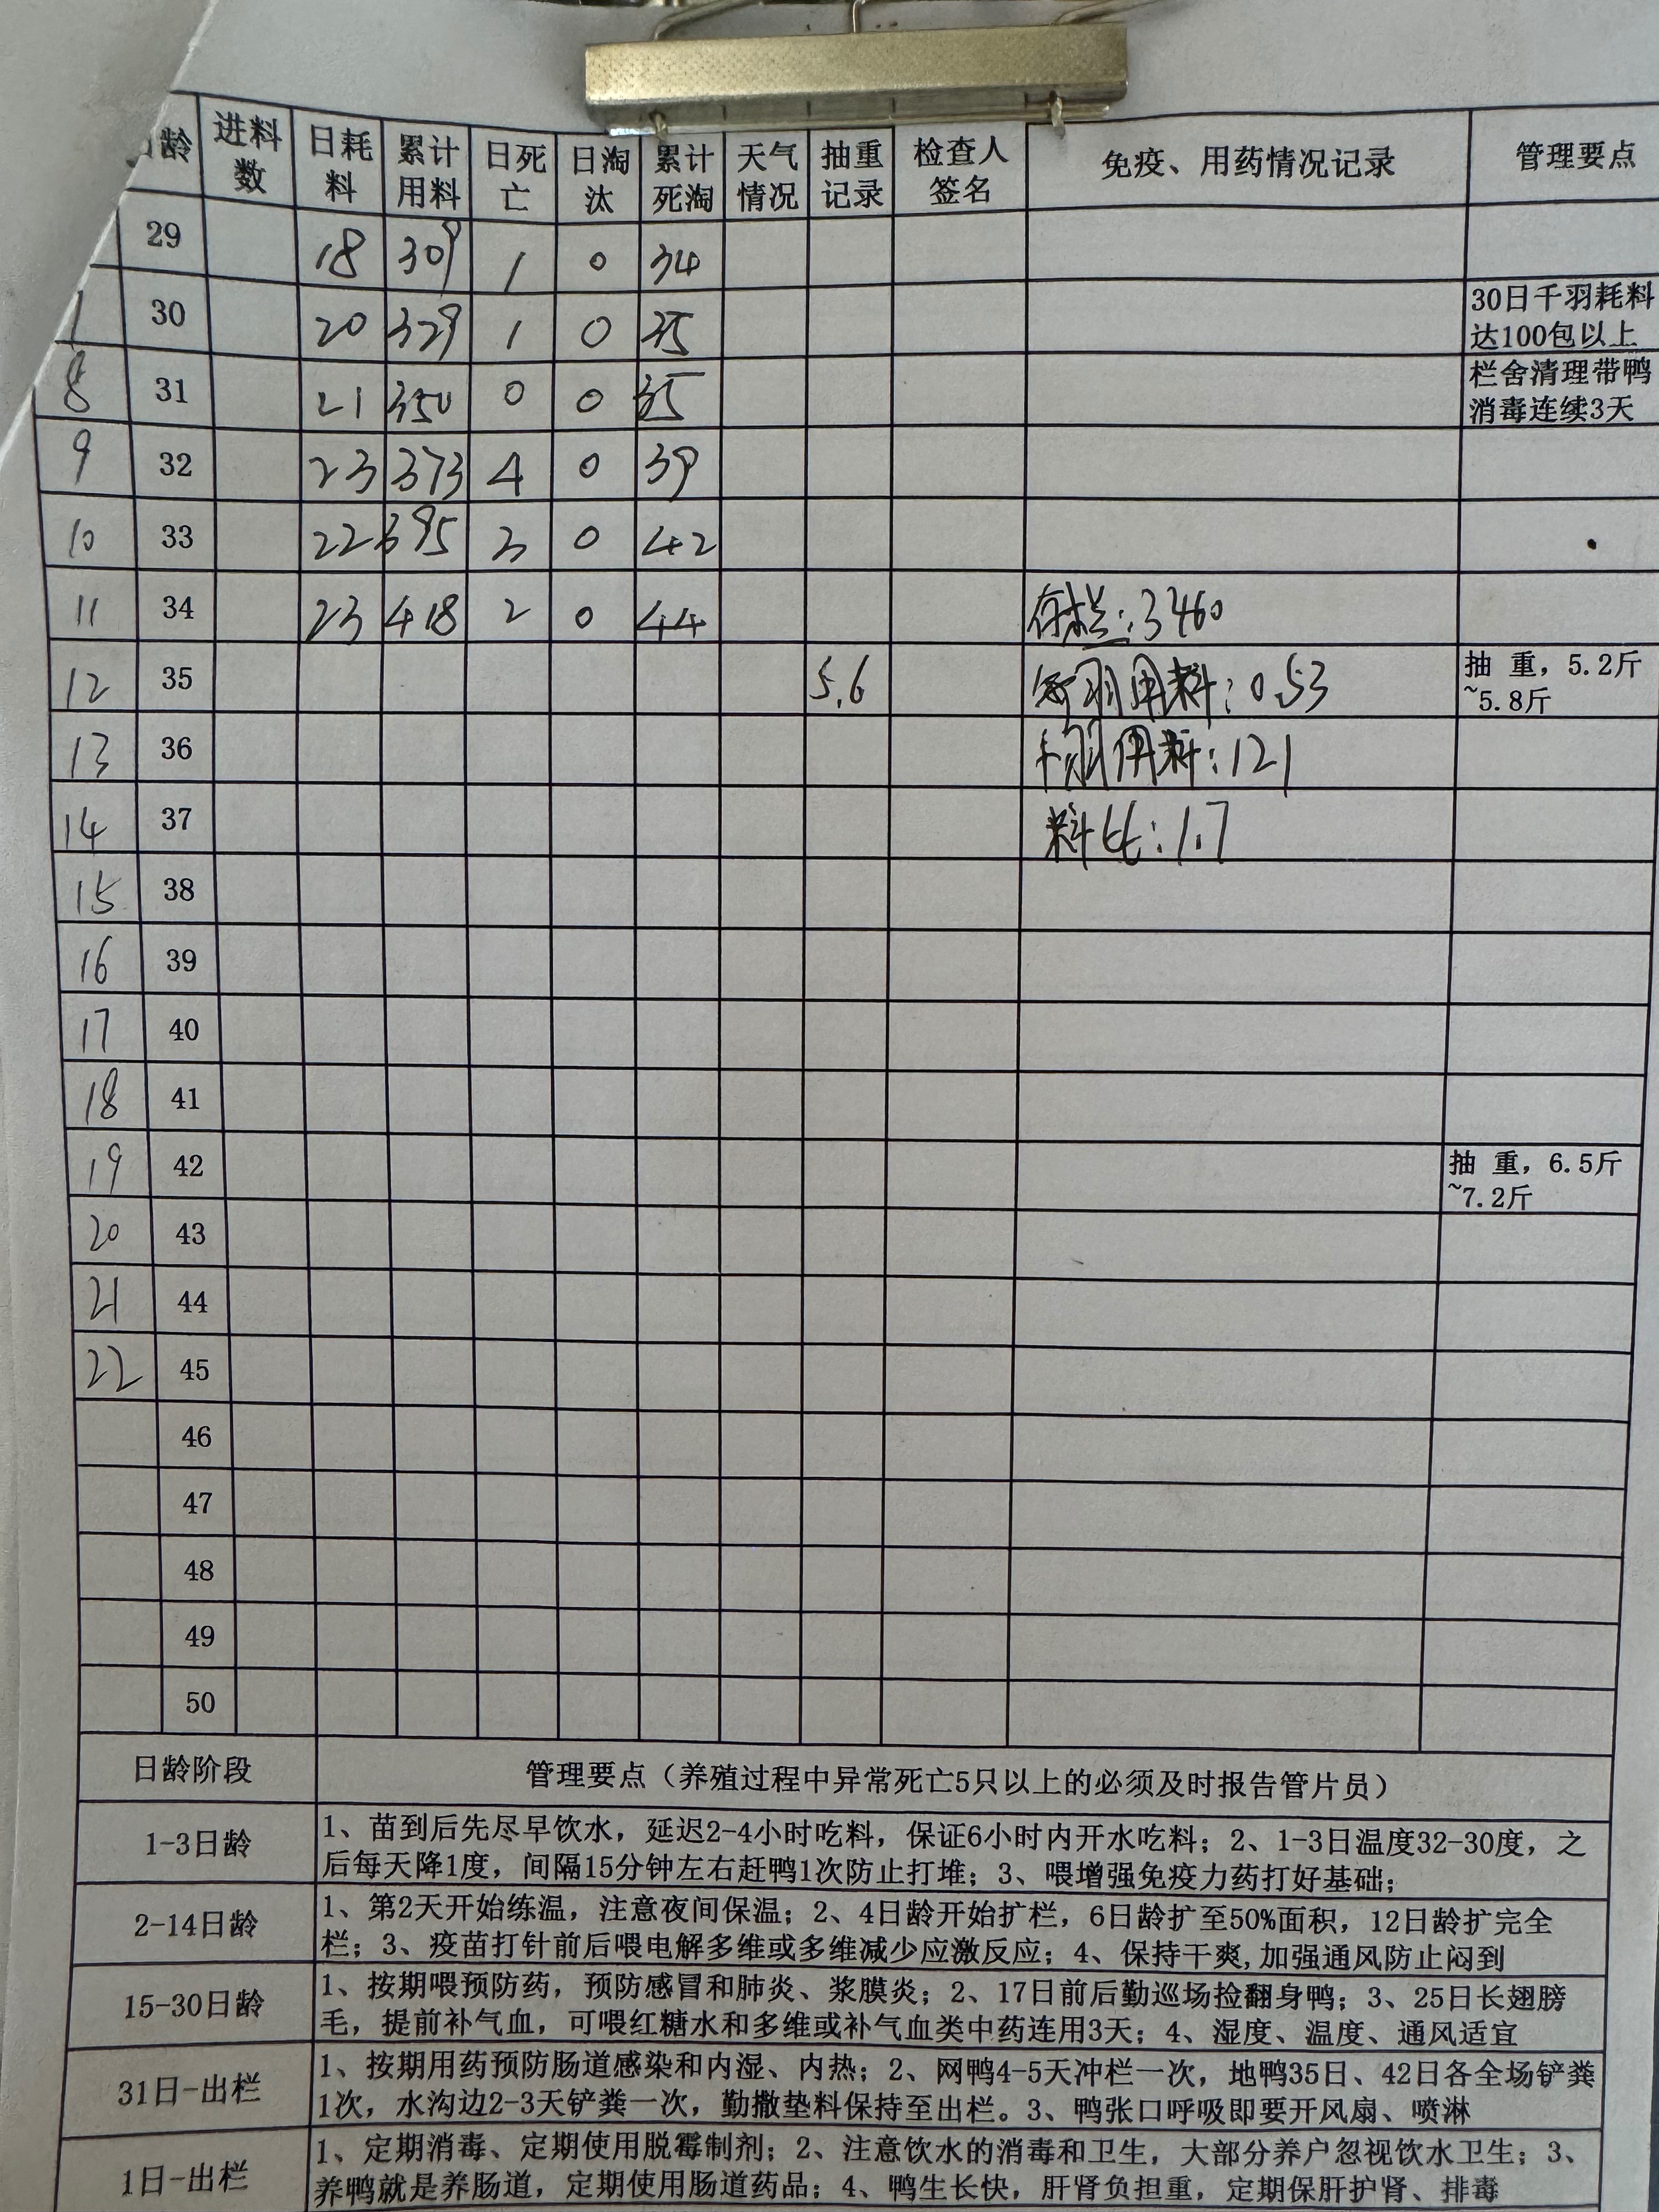 日龄 进料数 日耗料 累计用料 日死亡 日淘汰 累计死淘 天气情况 抽重记录 检查人签名 免疫、用药情况记录 管理要点
29 18 309 1 0 34
30 20 329 1 0 35 30日千羽耗料达100包以上
8 31 21 350 0 0 35 栏舍清理带鸭消毒连续3天
9 32 23 373 4 0 39
10 33 22 395 3 0 42
11 34 23 418 2 0 44 存栏:3460
12 35 5.6 每羽用料:0.53 抽 重，5.2斤~5.8斤
13 36 千羽用料:121
14 37 料比:1.7
15 38
16 39
17 40
18 41
19 42 抽 重，6.5斤~7.2斤
20 43
21 44
22 45
46
47
48
49
50
日龄阶段 管理要点（养殖过程中异常死亡5只以上的必须及时报告管片员）
1-3日龄 1、苗到后先尽早饮水，延迟2-4小时吃料，保证6小时内开水吃料；2、1-3日温度32-30度，之
后每天降1度，间隔15分钟左右赶鸭1次防止打堆；3、喂增强免疫力药打好基础；
2-14日龄 1、第2天开始练温，注意夜间保温；2、4日龄开始扩栏，6日龄扩至50%面积，12日龄扩完全
栏；3、疫苗打针前后喂电解多维或多维减少应激反应；4、保持干爽,加强通风防止闷到
15-30日龄 1、按期喂预防药，预防感冒和肺炎、浆膜炎；2、17日前后勤巡场捡翻身鸭；3、25日长翅膀
毛，提前补气血，可喂红糖水和多维或补气血类中药连用3天；4、湿度、温度、通风适宜
31日-出栏 1、按期用药预防肠道感染和内湿、内热；2、网鸭4-5天冲栏一次，地鸭35日、42日各全场铲粪
1次，水沟边2-3天铲粪一次，勤撒垫料保持至出栏。3、鸭张口呼吸即要开风扇、喷淋
1日-出栏 1、定期消毒、定期使用脱霉制剂；2、注意饮水的消毒和卫生，大部分养户忽视饮水卫生；3、
养鸭就是养肠道，定期使用肠道药品；4、鸭生长快，肝肾负担重，定期保肝护肾、排毒